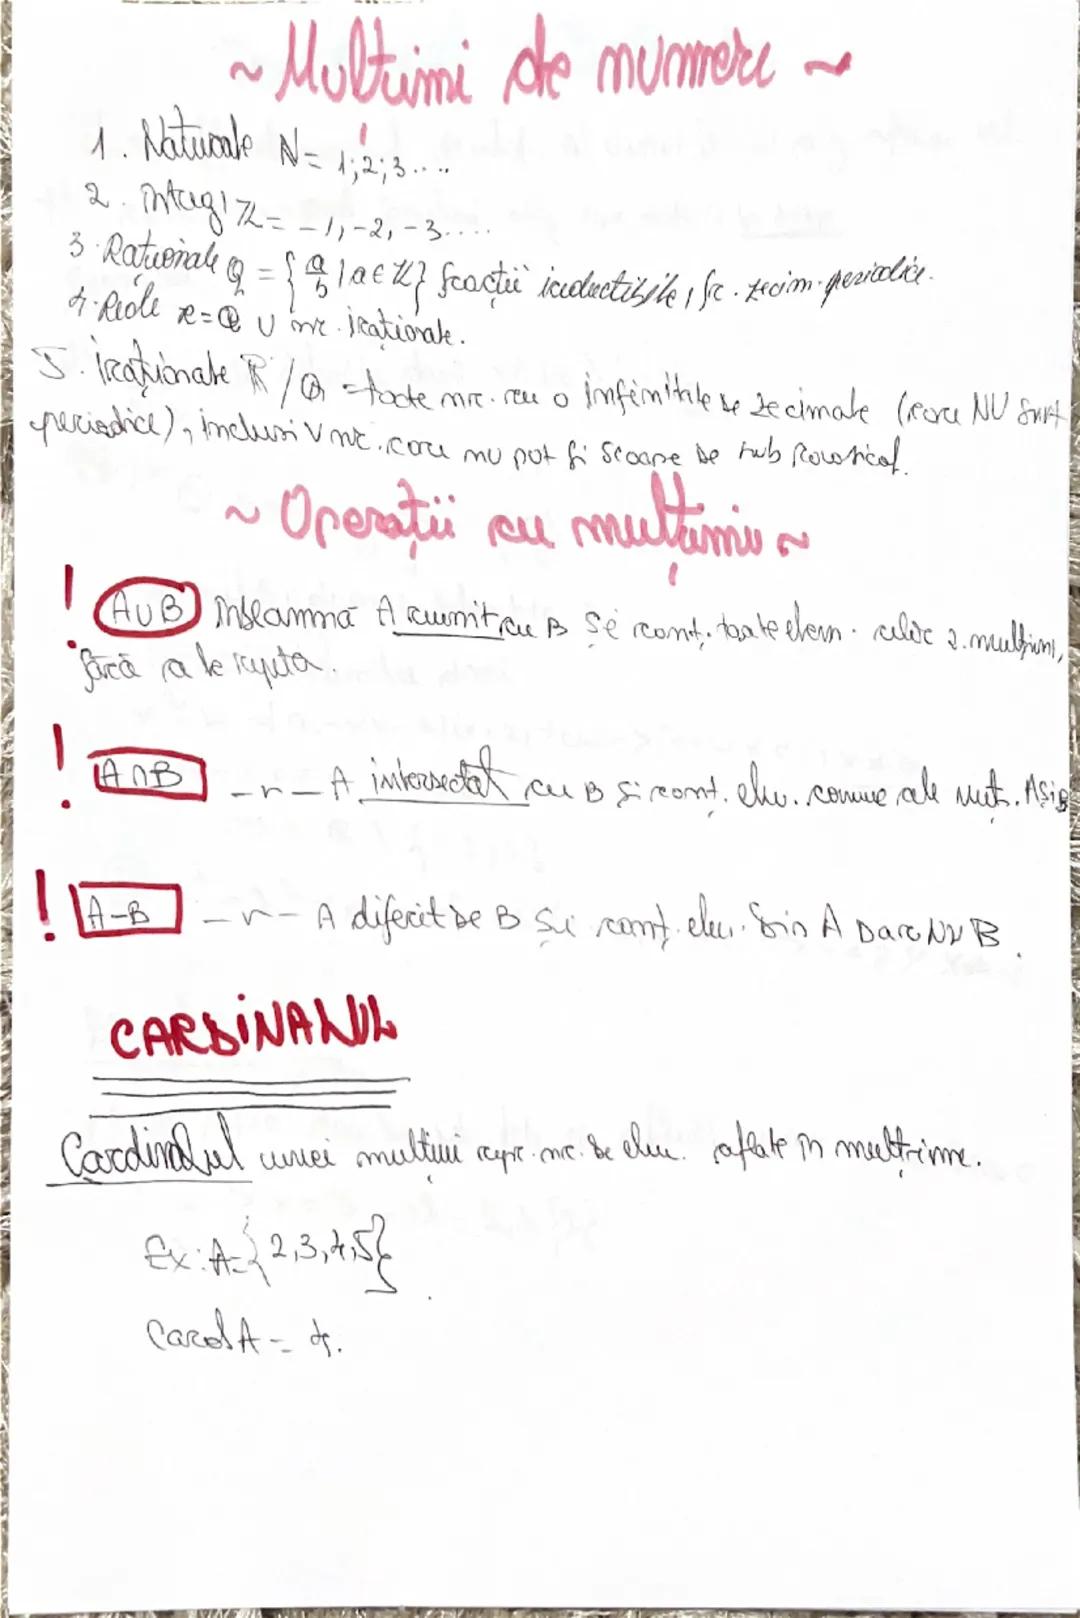 ~ Multimi de numere ~
1. Naturale N = 1;2;3....
2. Intregi ℤ = -1,-2,-3....
3. Raționale Q = {a/b | a ∈ ℤ} fracții ireductibile, fr. zecim. periodice.
4. Reale R = Q ∪ nr. iraționale.
5. iraționale ℝ/Q = toate nr. cu o infinitate de zecimale (care NU sunt
periodice), inclusiv nr. care nu pot fi scoase de sub radical.
~ Operații cu mulțimi ~
! A∪B înseamnă A reunit cu B și conț. toate elem. celor 2 mulțimi,
fără a le repeta.
! A∩B -"- A intersectat cu B și conț. elem. comune ale mulț. A și B
! A-B -"- A diferit de B și conț. elem. din A Dar NU B.
CARDINALUL
Cardinalul unei mulțimi repr. nr. de elem. aflate în mulțime.
Ex: A={2,3,4,5}
Card A = 4.